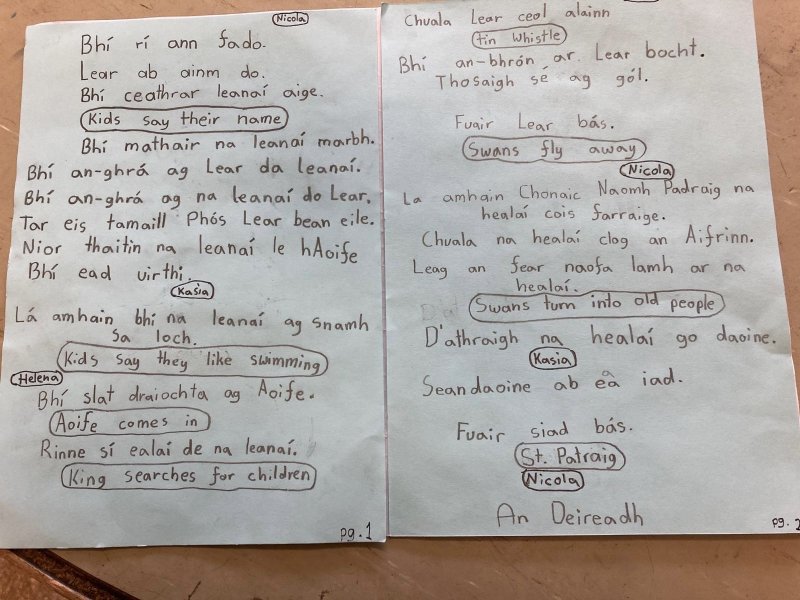 Nicola
Bhí rí ann fado.
Lear ab ainm do.
Bhí ceathrar leanaí aige.
Kids say their name
Bhí mathair na leanaí marbh.
Bhí an-ghrá ag Lear da leanaí.
Bhí an-ghrá ag na leanaí do Lear.
Tar eis tamaill Phós Lear bean eile.
Nior thaitin na leanaí le hAoife
Bhí ead uirthi.
Kasia
Lá amhain bhí na leanaí ag snamh
sa loch.
Kids say they like swimming
Helena
Bhí slat draiochta ag Aoife.
Aoife comes in
Rinne sí ealaí de na leanaí.
King searches for children
pg.1
Chuala Lear ceol alainn
tin whistle
Bhí an-bhrón ar Lear bocht.
Thosaigh sé ag gól.
Fuair Lear bás.
Swans fly away
Nicola
La amhain Chonaic Naomh Padraig na
healaí cois farraige.
Chuala na healaí clog an Aifrinn.
Leag an fear naofa lamh ar na
healaí.
Swans turn into old people
D'athraigh na healaí go daoine.
Kasia
Seandaoine ab ea iad.
Fuair siad bás.
St. Patraig
Nicola
An Deireadh
pg.2